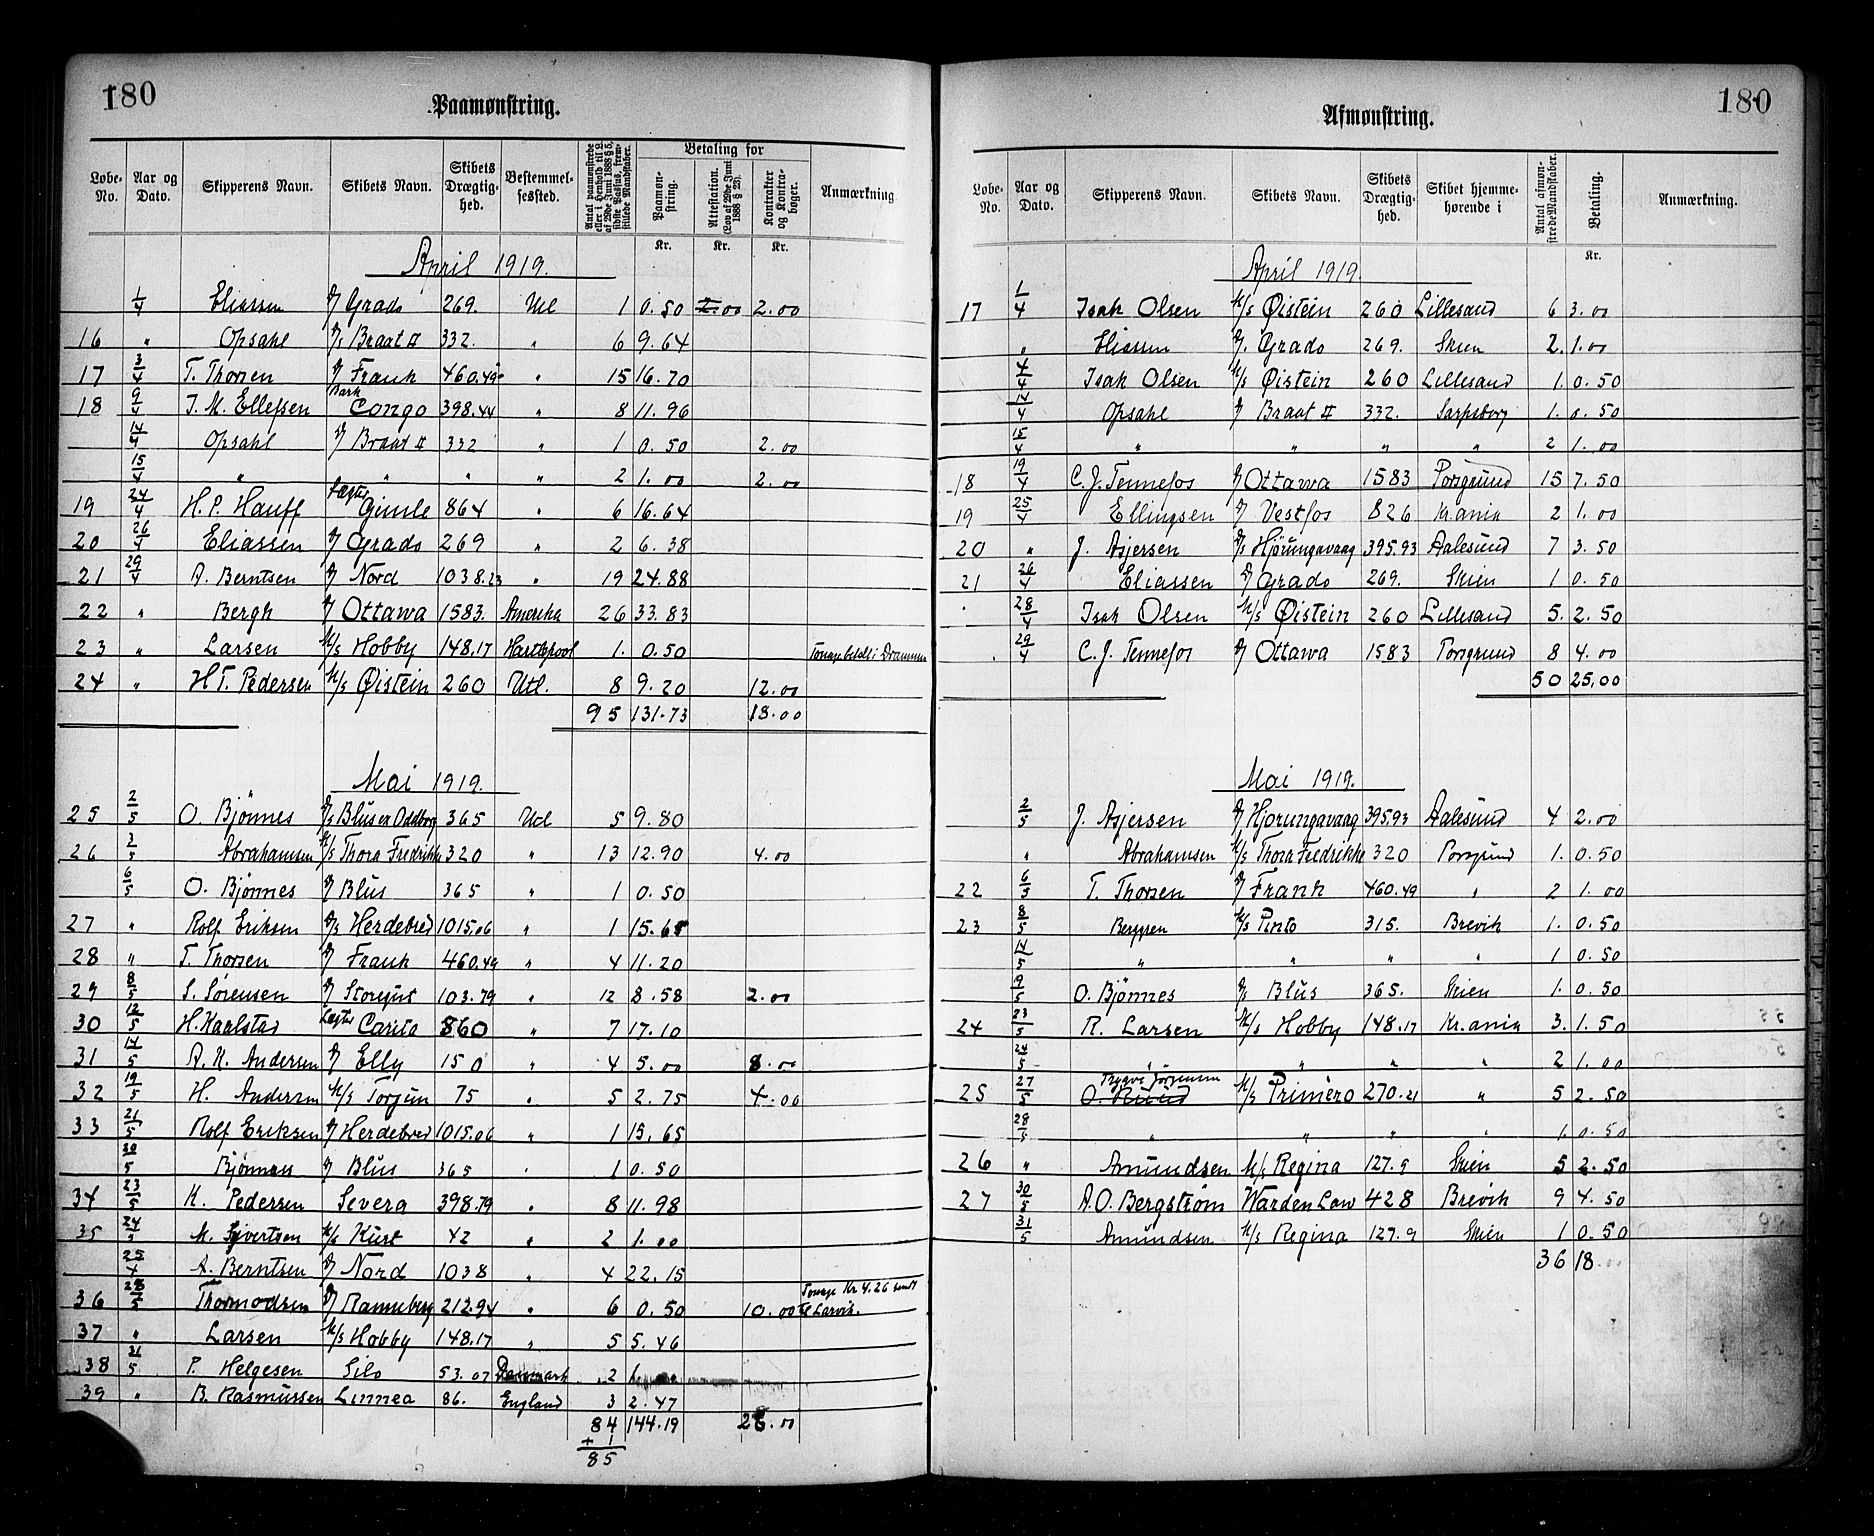 180
Paamønstring.
Løbe-No. | Aar og Dato. | Skipperens Navn. | Skibets Navn. | Skibets Drægtig-hed. | Bestemmel-sessted. | Antal paamønstrede eller i Henhold til L. af 29de Juni 1888 § 5, sidste Passus, frem-stillede Mandskaber. | Betaling for | Paamøn-string. Kr. | Attestation. (Lov af 29de Juni 1888 § 25). Kr. | Kontrakter og Kontra-bøger. Kr. | Anmærkning.
April 1919.
1/4 Eliassen D/ Grado 269. Utl 1 0.50 2.00 2.00
16 " Opsahl D/s Braat II 332. " 6 9.64
17 3/4 T. Thorsen D/ Frank 460.49 " 15 16.70
18 9/4 J. M. Ellefsen Bark Congo 398.44 " 8 11.96
14/4 Opsahl D/ Braat II 332 " 1 0.50 2.00
15/4 " " " " 2 1.00 2.00
19 24/4 H. P. Hauff Lægter Gimle 864 " 6 16.64
20 26/4 Eliassen D/ Grado 269 " 2 6.38
21 29/4 A. Berntsen D/ Nord 1038.23 " 19 24.88
22 " Bergh D/ Ottawa 1583. Amerika 26 33.83
23 " Larsen M/s Hobby 148.17 Hartlepool 1. 0.50 Tonage betalt i Drammen
24 " H T. Pedersen M/s Øistein 260 Utl. 8 9.20 12.00
95 131.73 18.00
Mai 1919.
25 2/5 O. Bjønnes D/s Blus ex Oddborg 365 Utl 5 9.80
26 2/5 Abrahamsen M/s Thora Fredrikke 320 " 13 12.90 4.00
6/5 O. Bjønnes D/ Blus 365 " 1 0.50
27 " Rolf Eriksen D/s Herdebred 1015.06 " 1 15.65
28 " T. Thorsen D/ Frank 460.49 " 4 11.20
29 8/5 S. Sørensen D/ Storejus 103.79 " 12 8.58 2.00
30 12/5 H. Kaalstad Lægter Carita 860 " 7 17.10
31 14/5 A. K. Andersen D/ Elly 150 " 4 5.00 8.00
32 19/5 H. Andersen M/s Torjun 75 " 5 2.75 4.00
33 21/5 Rolf Eriksen D/ Herdebred 1015.06 " 1 15.65
20/5 Bjønnes D/ Blus 365 " 1 0.50
34 23/5 K. Pedersen Severa 398.79 " 8 11.98
35 24/5 M. Syvertsen M/s Kurt 42 " 2 1.00
25/4 A. Berntsen D/ Nord 1038 " 4 22.15
36 28/5 Thormodsen D/ Ranneberg 212.94 " 6 0.50 10.00 Tonage Kr 4.26 sendt til Larvik.
37 " Larsen M/s Hobby 148.17 " 5 5.46
38 31/5 P. Helgesen Silo 53.07 Danmark 2 1.
39 " B. Rasmussen Linnea 86. England 3 2.47
84 144.19 28.00
+ 1
85
180
Afmønstring.
Løbe-No. | Aar og Dato. | Skipperens Navn. | Skibets Navn. | Skibets Drægtig-hed. | Skibet hjemme-hørende i | Antal afmøn-strede Mandskaber. | Betaling. Kr. | Anmærkning.
April 1919.
17 1/4 Isak Olsen M/s Øistein 260 Lillesand 6 3.00
" Eliassen D/. Grado 269. Skien 2. 1.00
4/4 Isak Olsen M/s Øistein 260 Lillesand 1. 0.50
14/4 Opsahl D/ Braat II 332. Sarpsborg 1. 0.50
15/4 " " " " 2 1.00
18 19/4 C. J. Tennefos D/ Ottawa 1583 Porsgrund 15 7.50
19 25/4 Ellingsen D/ Vestfos 826 Kr.ania 2 1.00
20 " J. Asjersen D/s Hjørungavaag 395.93 Aalesund 7 3.50
21 26/4 Eliassen D/ Grado 269. Skien 1 0.50
28/4 Isak Olsen M/s Øistein 260 Lillesand 5. 2.50
29/4 C. J. Tennefos D/ Ottawa 1583 Porsgrund 8 4.00
50 25,00
Mai 1919.
2/5 J. Asjersen D/ Hjorungavaag 395.93 Aalesund 4 2.00
" Abrahamsen M/s Thora Fredrikke 320 Porsgrund 1. 0.50
22 6/5 T. Thorsen D/ Frank 460.49 " 2 1.00
23 8/5 Berggren M/s Pinto 315. Brevik 1. 0.50
14/5 " " " " 1 0.50
9/5 O. Bjønnes D/s Blus 365. Skien 1. 0.50
24 23/5 R. Larsen M/s Hobby 148.17 Kr.ania 3. 1.50
24/5 " " " " 2 1.00
25 27/5 Trygve Jørgensen M/s Primero 270.21 " 5 2.50
28/5 " " " " 1. 0.50
26 " Amundsen M/s Regina 127.9 Skien 5 2.50
27 30/5 A. O. Bergstrøm Warden Law 428 Brevik 9 4.50
31/5 Amundsen M/s Regina 127.9 Skien 1 0.50
36 18.00